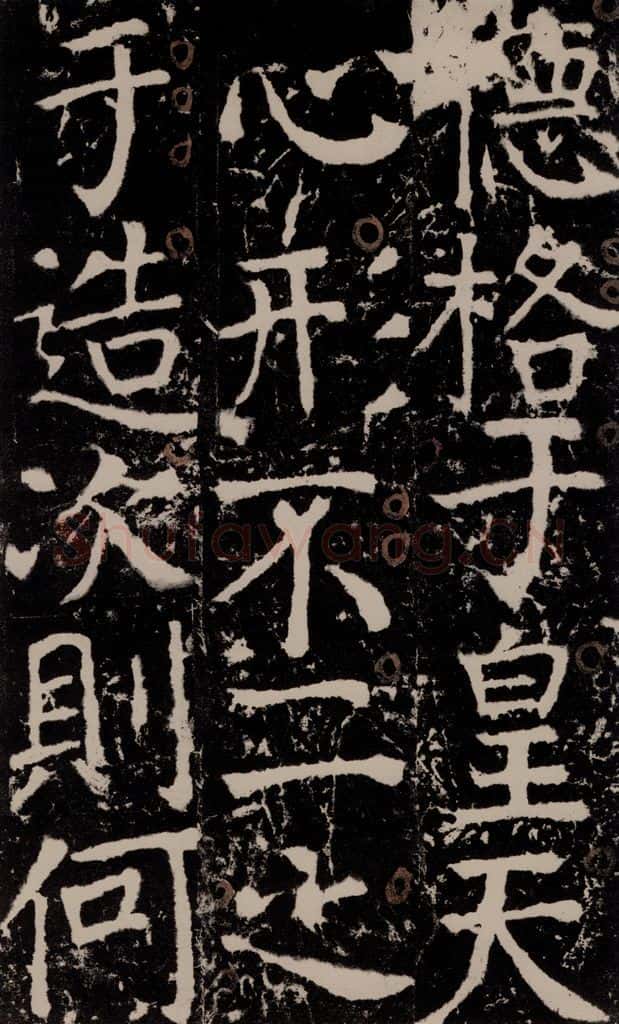 德格于皇天
心形不二之
于造次則何
Shufawang.CN